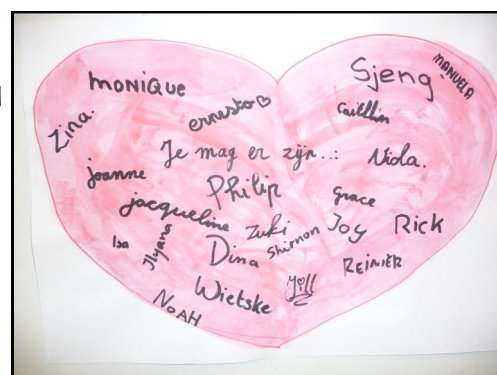 Sjeng
MANUELA
MONIQUE
ernesto
Caitlin
Zina.
Je mag er zijn..:
Nola.
joanne
Philip
Grace
jacqueline
Zuki
Joy
Rick
Isa
Ilyana
Dina
Shirmon
REINIER
Wietske
Jill
NOAH